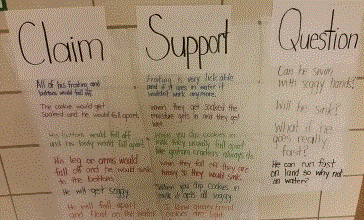 Claim
All of his frosting and
buttons would fall off.
The cookie would get
soaked and he would fall apart.
His buttons would fall off
and his body would fall apart.
His leg or arms would
fall off and he would sink
to the bottom.
He will get soggy.
He will fall apart
and float on the water
Support
Frosting is very lickable
and if it goes in water it
wouldn't work anymore.
When they get soaked the
moisture gets in and they get
When you dip cookies in
milk they usually fall apart
like graham crackers always do.
When they fall off they are
heavy so they would sink.
When you dip cookies in
milk it gets all soggy.
Question
Can he swim
with soggy hands?
Will he sink?
What if he
goes really
fast?
He can run fast
on land so why not
on water?